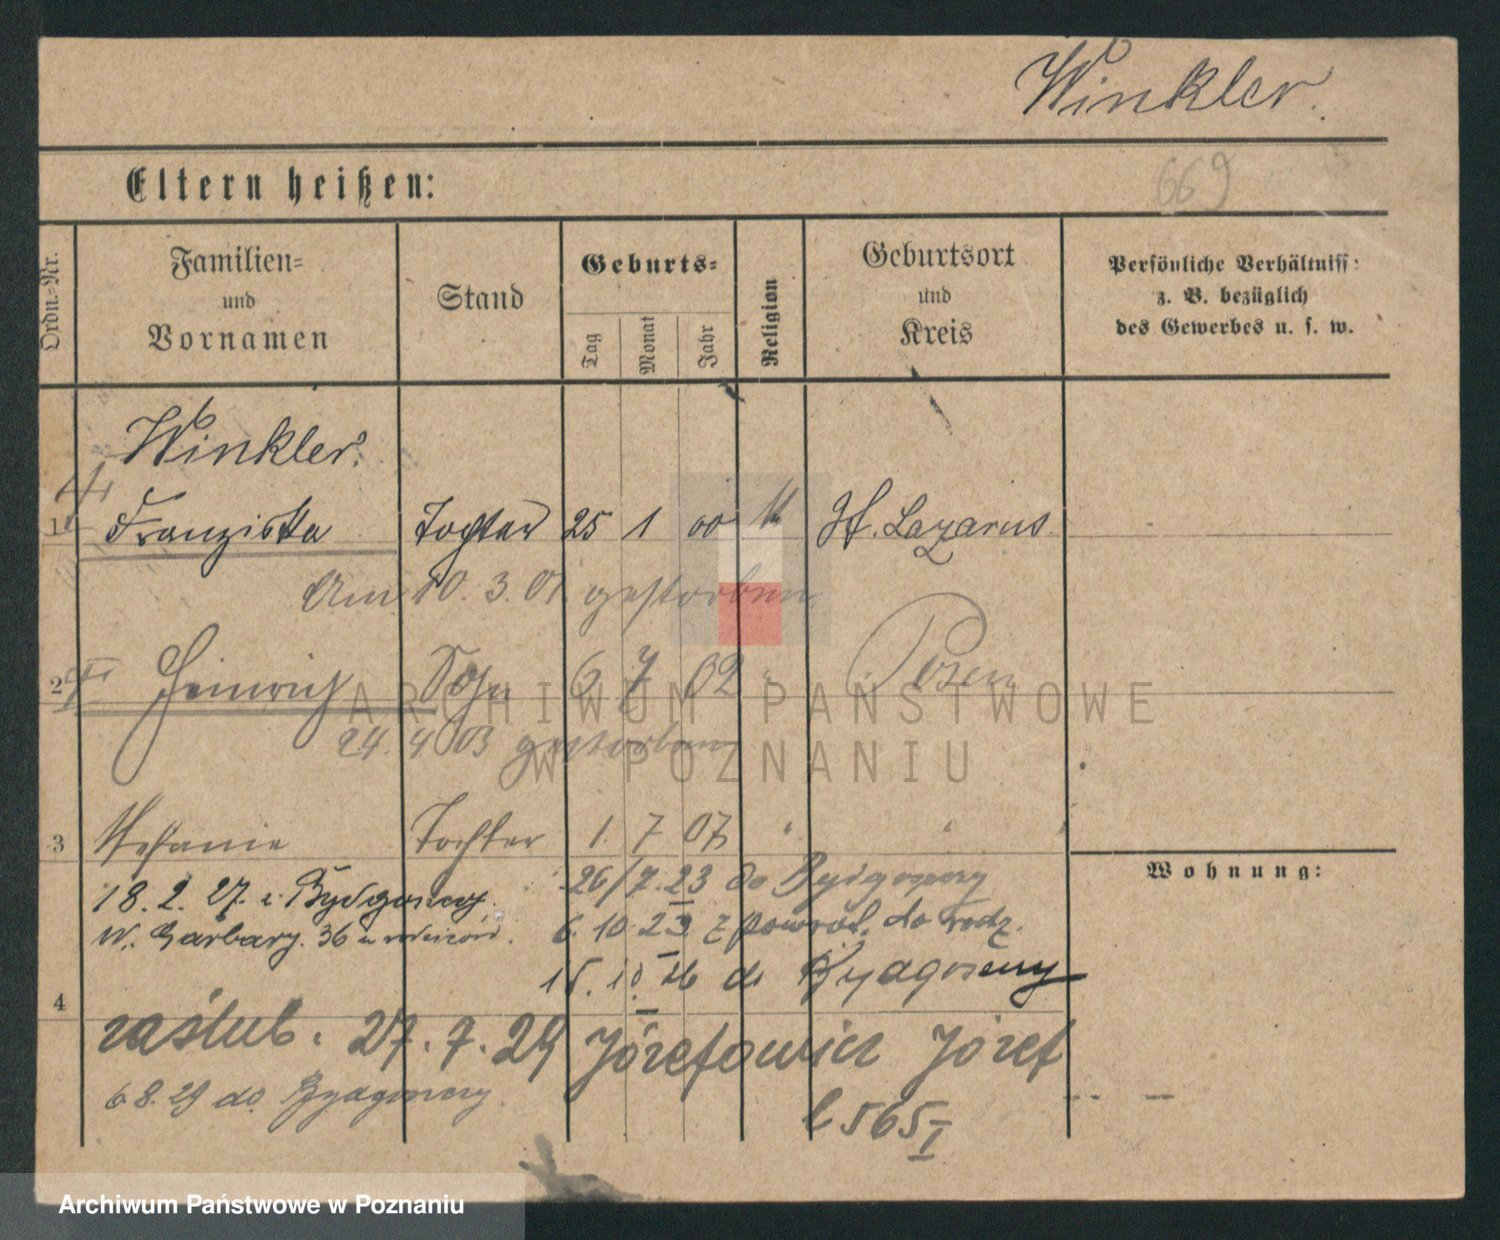 Winkler.
Eltern heißen:
669
Ordn.-Nr.
Familien-
und
Vornamen
Stand
Geburts-
Tag
Monat
Jahr
Religion
Geburtsort
und
Kreis
Persönliche Verhältniss:
z. B. bezüglich
des Gewerbes u. s. w.
Winkler.
1 Franziska Tochter 25 1 00 k St. Lazarus
Am 10. 3. 01 gestorben
2 Heinrich Sohn 6 7 02 " " Posen
24. 4. 03 gestorben
3 Stefanie Tochter 1. 7 07 " "
Wohnung:
18. 2. 27. z Bydgoszczy.
26/7. 23 do Bydgoszczy
W. Garbary. 36 u rodziców.
6. 10 23 z powrot. do rodz.
15. 10 26 do Bydgoszczy
4
zaślub. 27. 7. 29 Józefowicz Józef
6 8. 29 do Bydgoszczy.
l 565 I
ARCHIWUM PAŃSTWOWE
W POZNANIU
Archiwum Państwowe w Poznaniu